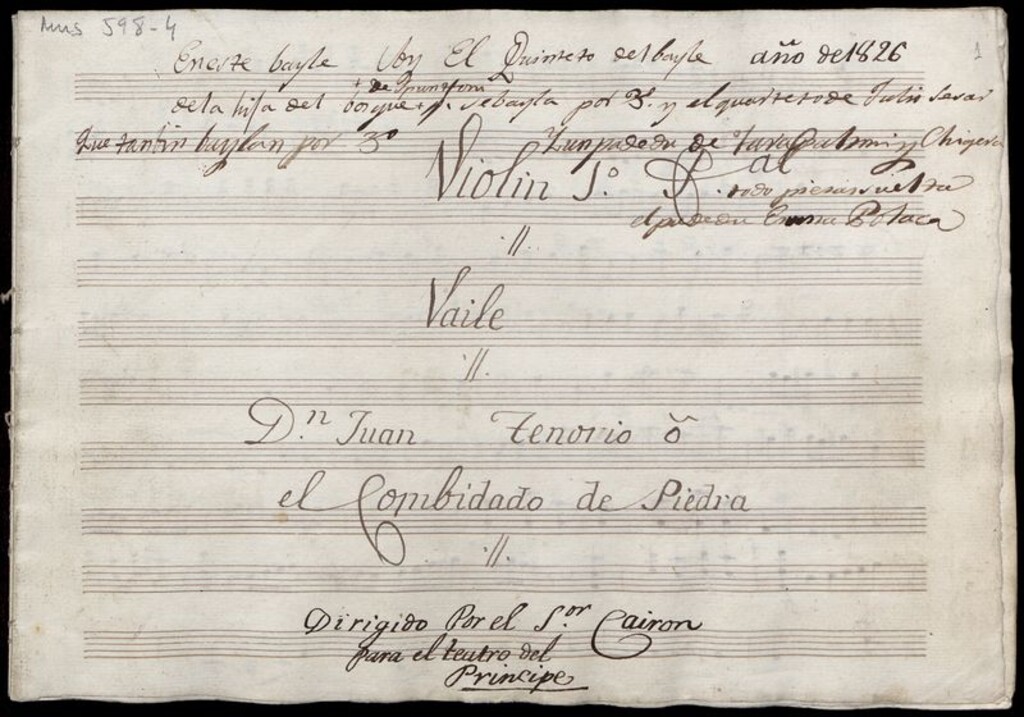 Mus 598-4
1
En este bayle Ay El Quinteto del bayle año de 1826
de la hija del se bayla por 3º. y el quarteto de Julio Sesar
Que tanbin baylan por 3º Y un padedu de
Violin 1.º al
todo piesas suelta
el padedu En una Polaca
Vaile
D.n Juan Tenorio ô
el Combidado de Piedra
Dirigido Por el S.or Cairon
para el teatro del
Principe